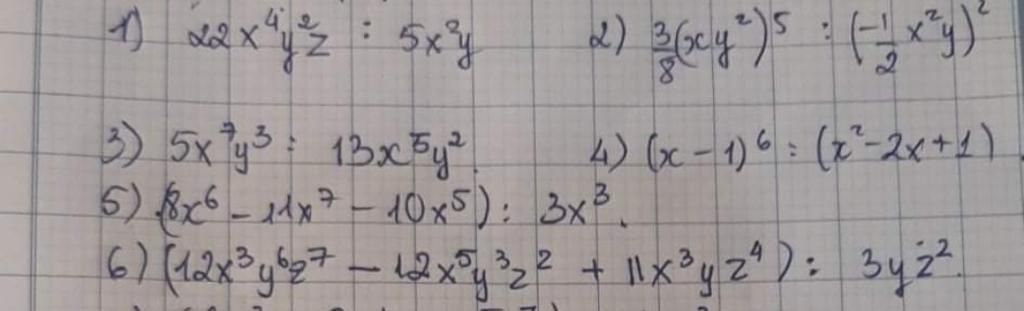 1) 22x⁴y²z : 5x²y 2) 3/8(xy²)⁵ : (-1/2 x²y)²
3) 5x⁷y³ : 13x⁵y² 4) (x - 1)⁶ : (x² - 2x + 1)
5) (8x⁶ - 11x⁷ - 10x⁵) : 3x³.
6) (12x³y⁶z⁷ - 12x⁵y³z² + 11x³yz⁴) : 3yz².